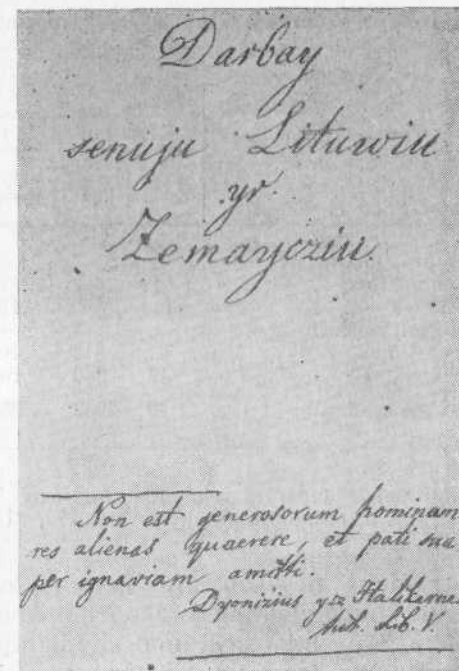 Darbay
senuju Lituwiu
yr
Zemaycziu.
Non est generosorum hominum
res alienas quaerere, et pati sua
per ignaviam amitti.
Dyonizius ysz Halikarna.
Lib. V.